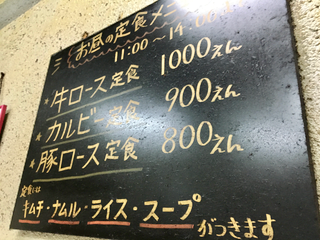 お昼の定食メニ
11:00～14:00
牛ロース定食 1000えん
カルビー定食 900えん
豚ロース定食 800えん
定食には
キムチ・ナムル・ライス・スープ
がつきます